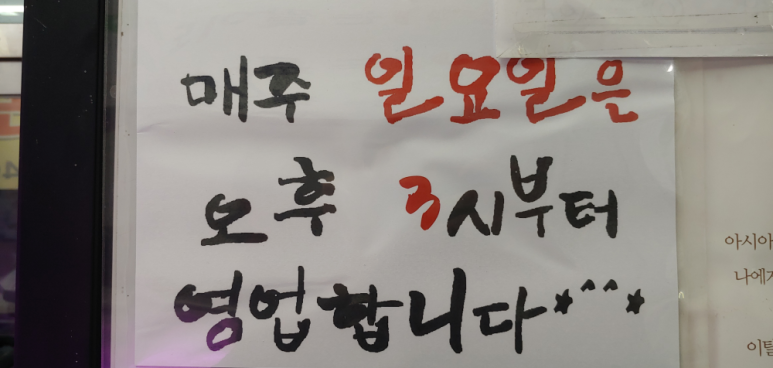 매주 일요일은
오후 3시부터
영업합니다*^^*
아시아
나에게
이탈